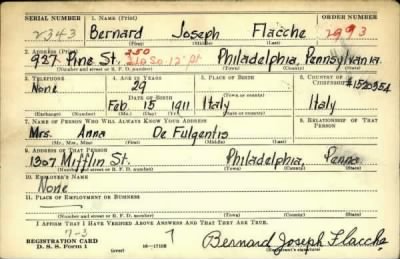 SERIAL NUMBER 1. NAME (Print) ORDER NUMBER
2343 Bernard Joseph Flacche 2993
(First) (Middle) (Last)
2. ADDRESS (Print) 250
927 Pine St. 210 So. 12" St Philadelphia, Pennsylvania
(Number and street or R. F. D. number) (Town) (County) (State)
3. TELEPHONE 4. AGE IN YEARS 5. PLACE OF BIRTH 6. COUNTRY OF CITIZENSHIP
None 29
DATE OF BIRTH (Town or county)
Feb 15 1911 Italy Italy
(Exchange) (Number) (Mo.) (Day) (Yr.) (State or country)
7. NAME OF PERSON WHO WILL ALWAYS KNOW YOUR ADDRESS 8. RELATIONSHIP OF THAT PERSON
Mrs. Anna De Fulgentis
(Mr., Mrs., Miss) (First) (Middle) (Last)
9. ADDRESS OF THAT PERSON
1307 Mifflin St. Philadelphia, Penna
(Number and street or R. F. D. number) (Town) (County) (State)
10. EMPLOYER'S NAME
None
11. PLACE OF EMPLOYMENT OR BUSINESS
(Number and street or R. F. D. number) (Town) (County) (State)
I AFFIRM THAT I HAVE VERIFIED ABOVE ANSWERS AND THAT THEY ARE TRUE.
REGISTRATION CARD
D. S. S. Form 1 (over) 7 Bernard Joseph Flacche
(Registrant's signature)